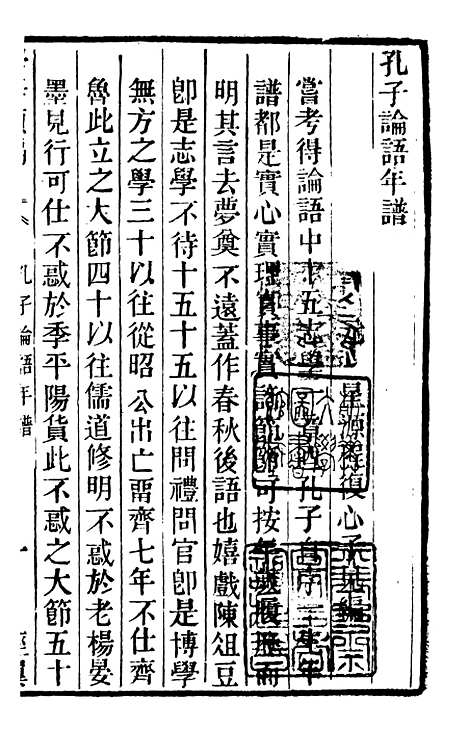 孔子論語年譜
星源程復心子見編
嘗考得論語中十五志學一章迺孔子自序一生年
譜都是實心實理實事實許節節可按年歲履歷而
明其言去夢奠不遠蓋作春秋後語也嬉戲陳俎豆
卽是志學不待十五十五以往問禮問官卽是博學
無方之學三十以往從昭公出亡畱齊七年不仕齊
魯此立之大節四十以往儒道修明不惑於老楊晏
墨見行可仕不惑於季平陽貨此不惑之大節五十
孔子論語年譜
一